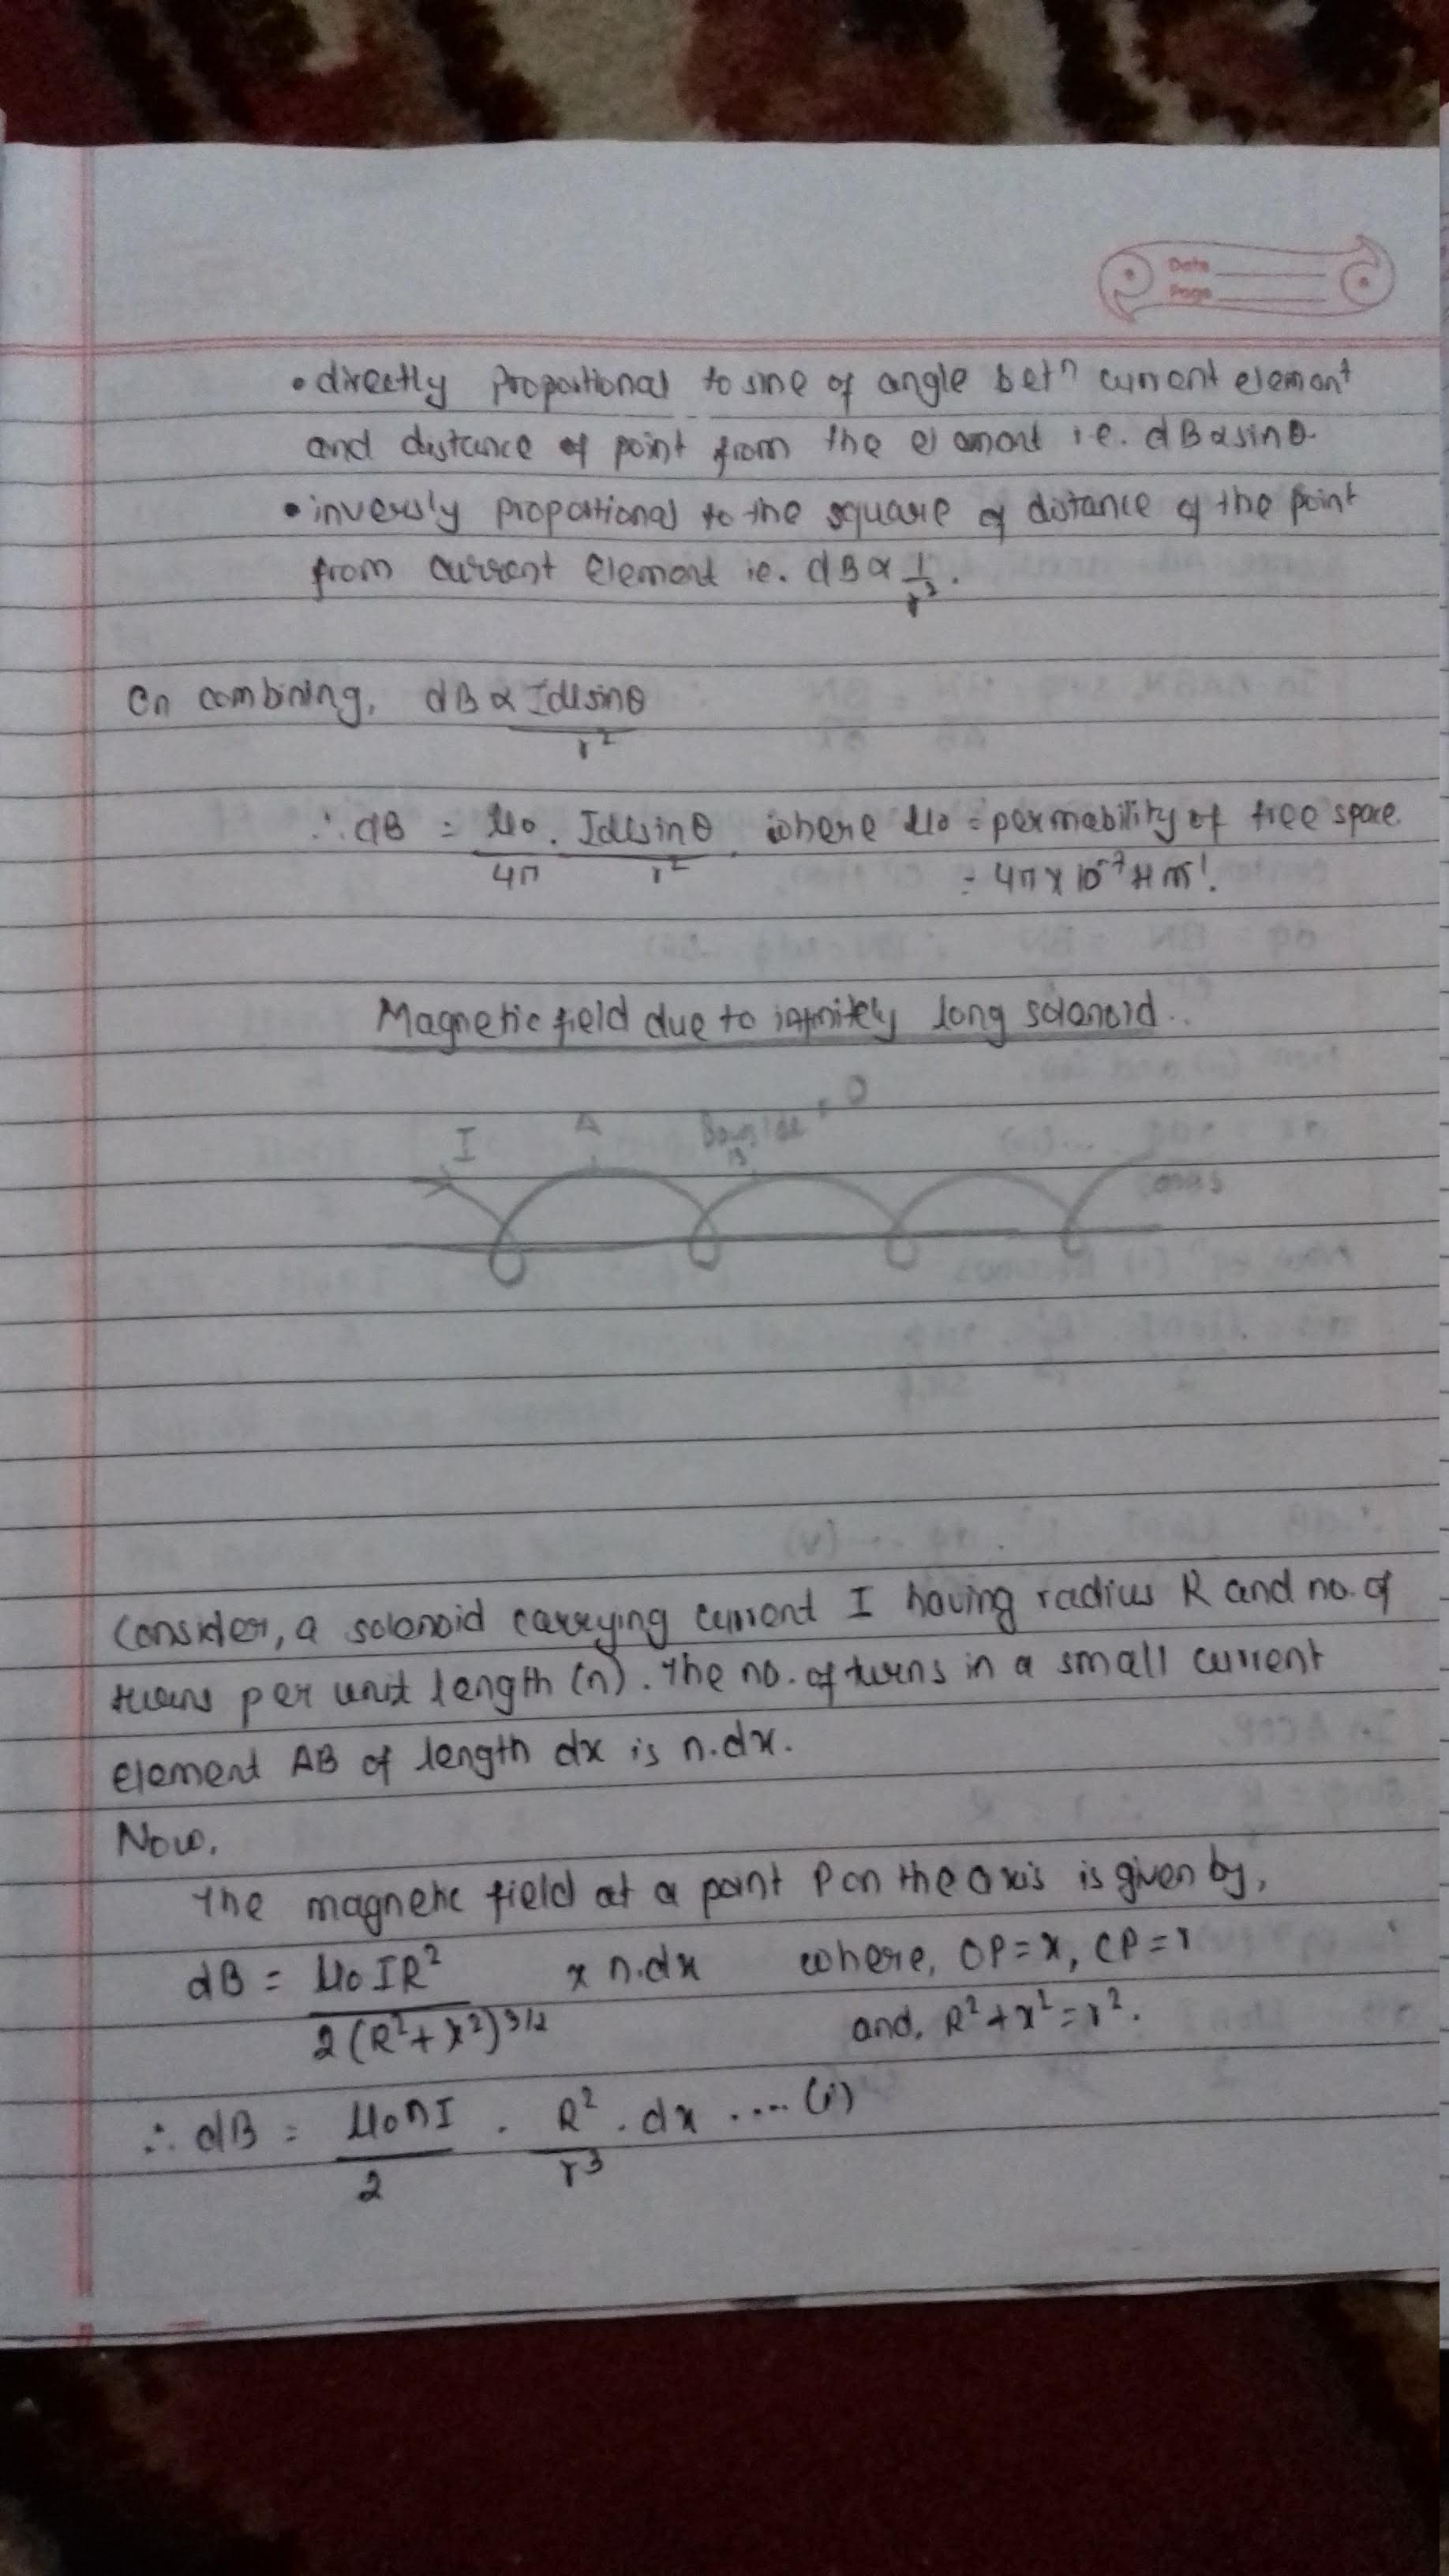 Date
Page
• directly proportional to sine of angle betⁿ current element
and distance of point from the element i.e. dB∝sinθ.
• inversly proportional to the square of distance of the point
from current element ie. dB∝ 1/r².
On combining, dB ∝ Idlsinθ/r²
∴ dB = μ₀/4π . Idlsinθ/r² where μ₀ = permability of free space.
= 4π × 10⁻⁷ Hm⁻¹.
Magnetic field due to infinitely long solenoid.
I A Boutside = 0
B
Consider, a solenoid carrying current I having radius R and no. of
turns per unit length (n). The no. of turns in a small current
element AB of length dx is n.dx.
Now,
The magnetic field at a point P on the axis is given by,
dB = μ₀IR²/2(R²+x²)^3/2 × n.dx where, OP = x, CP = r
and, R²+x² = r².
∴ dB = μ₀nI/2 . R²/r³ . dx .... (i)